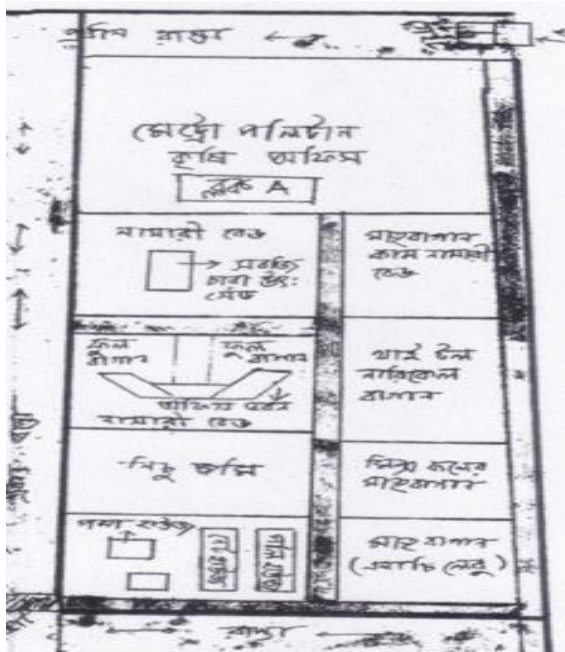 রাস্তা
মেট্রো পলিটান
কৃষি অফিস
ব্লক A
নার্সারী বেড
সবজি
চারা উৎ:
শেড
মাতৃবাগান
কাম নার্সারী
বেড
ফুল
বাগান
ফুল
বাগান
অফিস ভবন
নার্সারী বেড
থাই টল
নারিকেল
বাগান
নিচু জমি
মিশ্র ফলের
মাতৃবাগান
পাম্প হাউজ
মাতৃ বাগান
(এলাচি লেবু)
রাস্তা